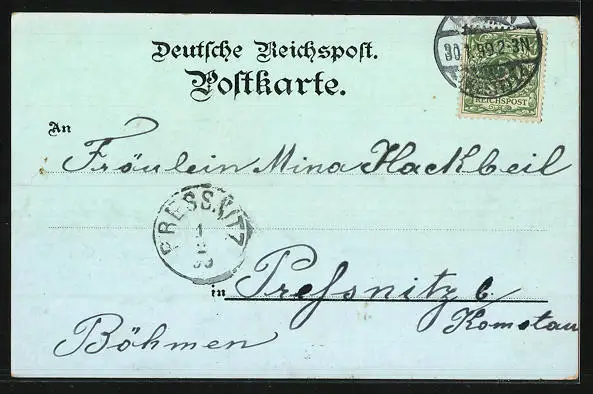 Deutsche Reichspost.
Postkarte.
30.1.99.2-3N
REICHSPOST
An
Fräulein Mina Hackbeil
PRESSNITZ
1
2
99
in Pressnitz b.
Komotau
Böhmen